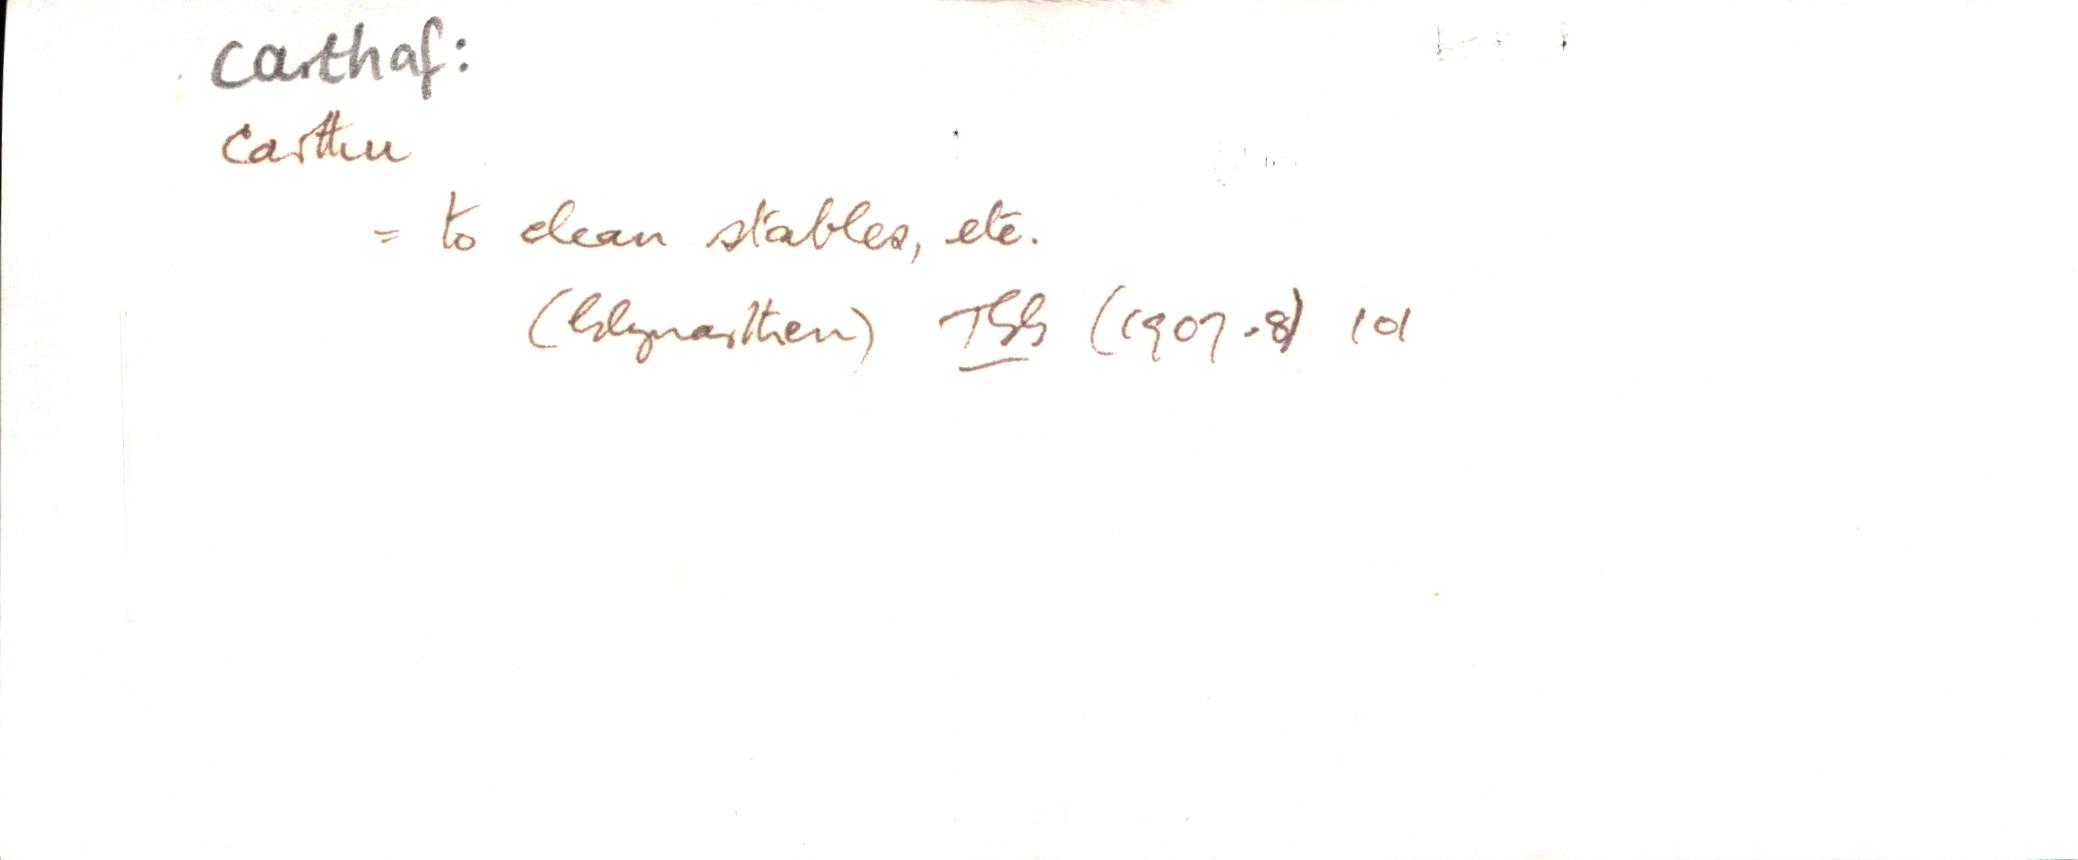 carthaf:
carthu
= to clean stables, etc.
(Glynarthen) TGG (1907-8) 101